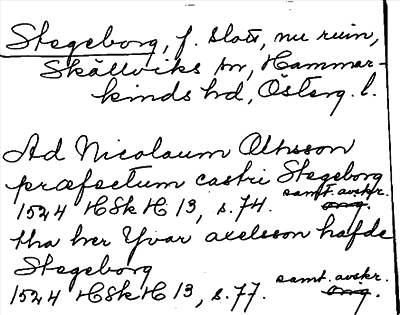 Stegeborg, f. slott, nu ruin,
Skällviks sn, Hammar-
kinds hd, Österg. l.
Ad Nicolaum Olhsson
præfectum castri Stegeborg
1524 HSkH 13, s. 74. samt. avskr. orig.
tha her Yvar axelsson hafde
Stegeborg
1524 HSkH 13, s. 77. samt. avskr. orig.